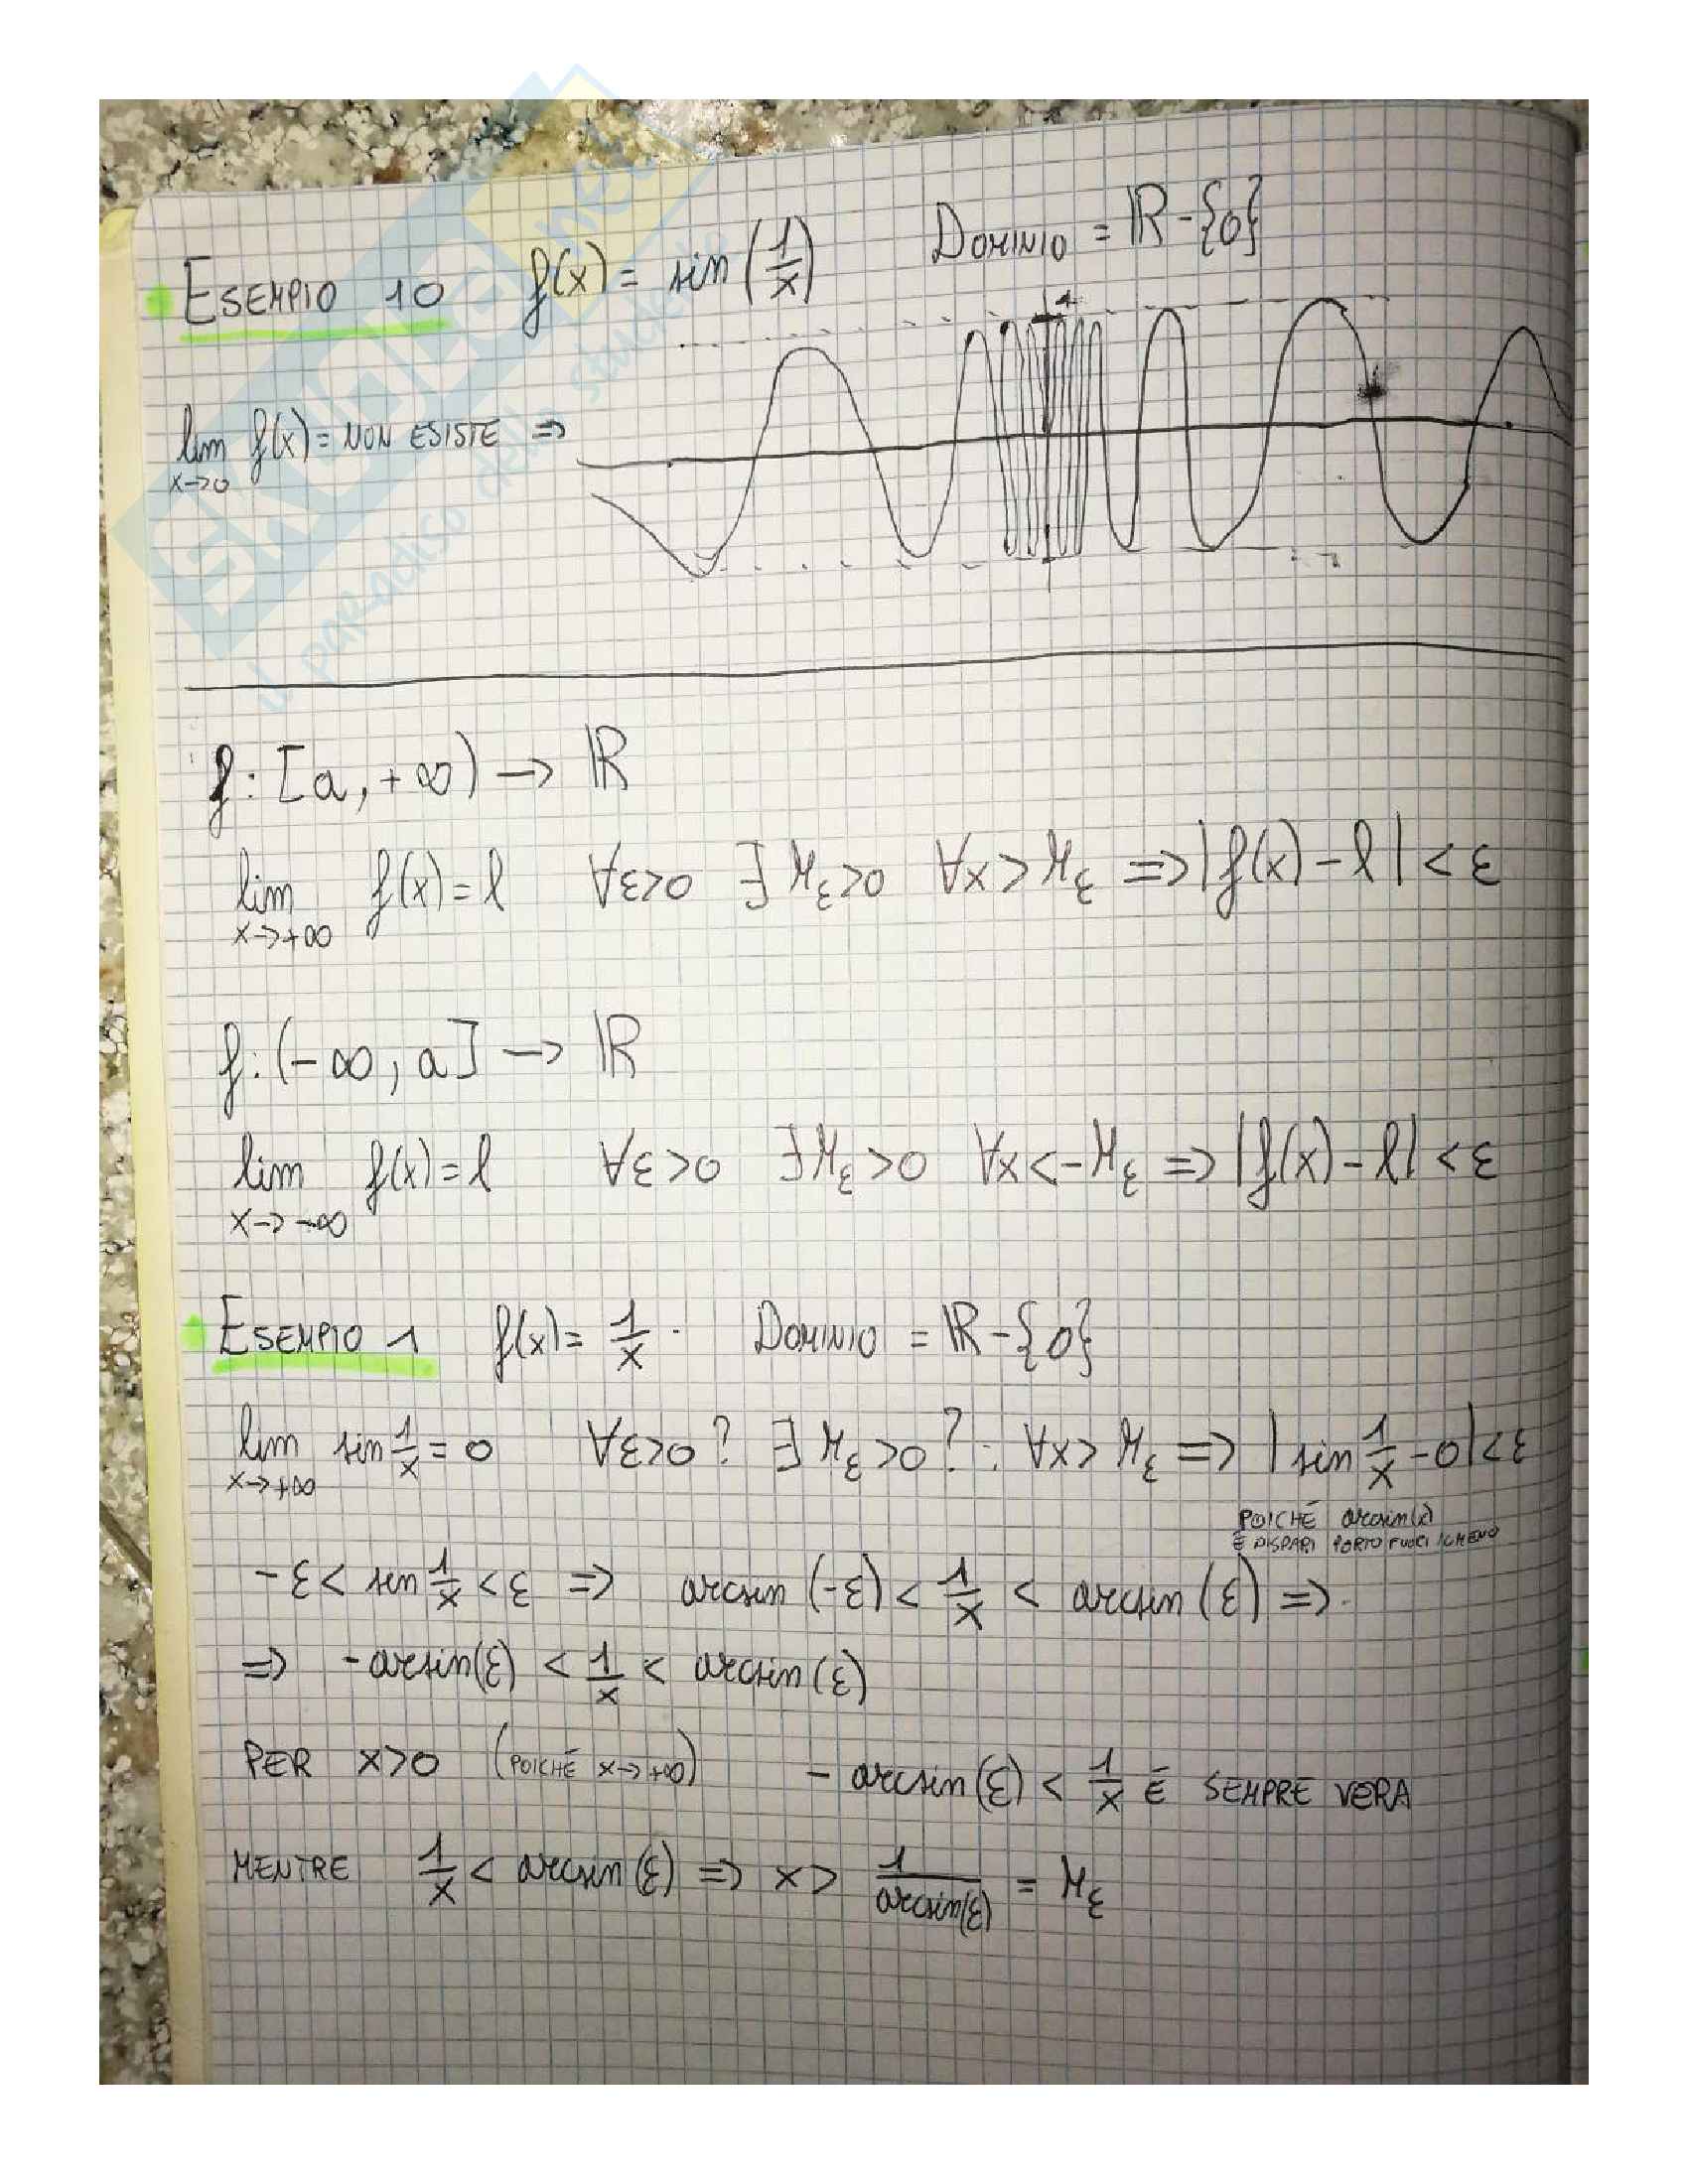 ESEMPIO 10 f(x) = sin(1/x) DOMINIO = ℝ-{0}
1
lim x→0 f(x) = NON ESISTE ⇒
-1
f: [a, +∞) → ℝ
lim x→+∞ f(x) = l ∀ε>0 ∃ M_ε>0 ∀x > M_ε ⇒ |f(x) - l| < ε
f: (-∞, a] → ℝ
lim x→-∞ f(x) = l ∀ε>0 ∃ M_ε>0 ∀x<-M_ε ⇒ |f(x) - l| < ε
ESEMPIO 1 f(x) = 1/x . DOMINIO = ℝ-{0}
lim x→+∞ sin 1/x = 0 ∀ε>0? ∃ M_ε>0? : ∀x > M_ε ⇒ |sin 1/x - 0| < ε
POICHÉ arcsin(x)
È DISPARI PORTO FUORI IL MENO
-ε < sin 1/x < ε ⇒ arcsin(-ε) < 1/x < arcsin(ε) ⇒
⇒ -arcsin(ε) < 1/x < arcsin(ε)
PER x>0 (POICHÉ x→+∞) - arcsin(ε) < 1/x È SEMPRE VERA
MENTRE 1/x < arcsin(ε) ⇒ x > 1/arcsin(ε) = M_ε
SKUOLA.net
il paradiso dello studente